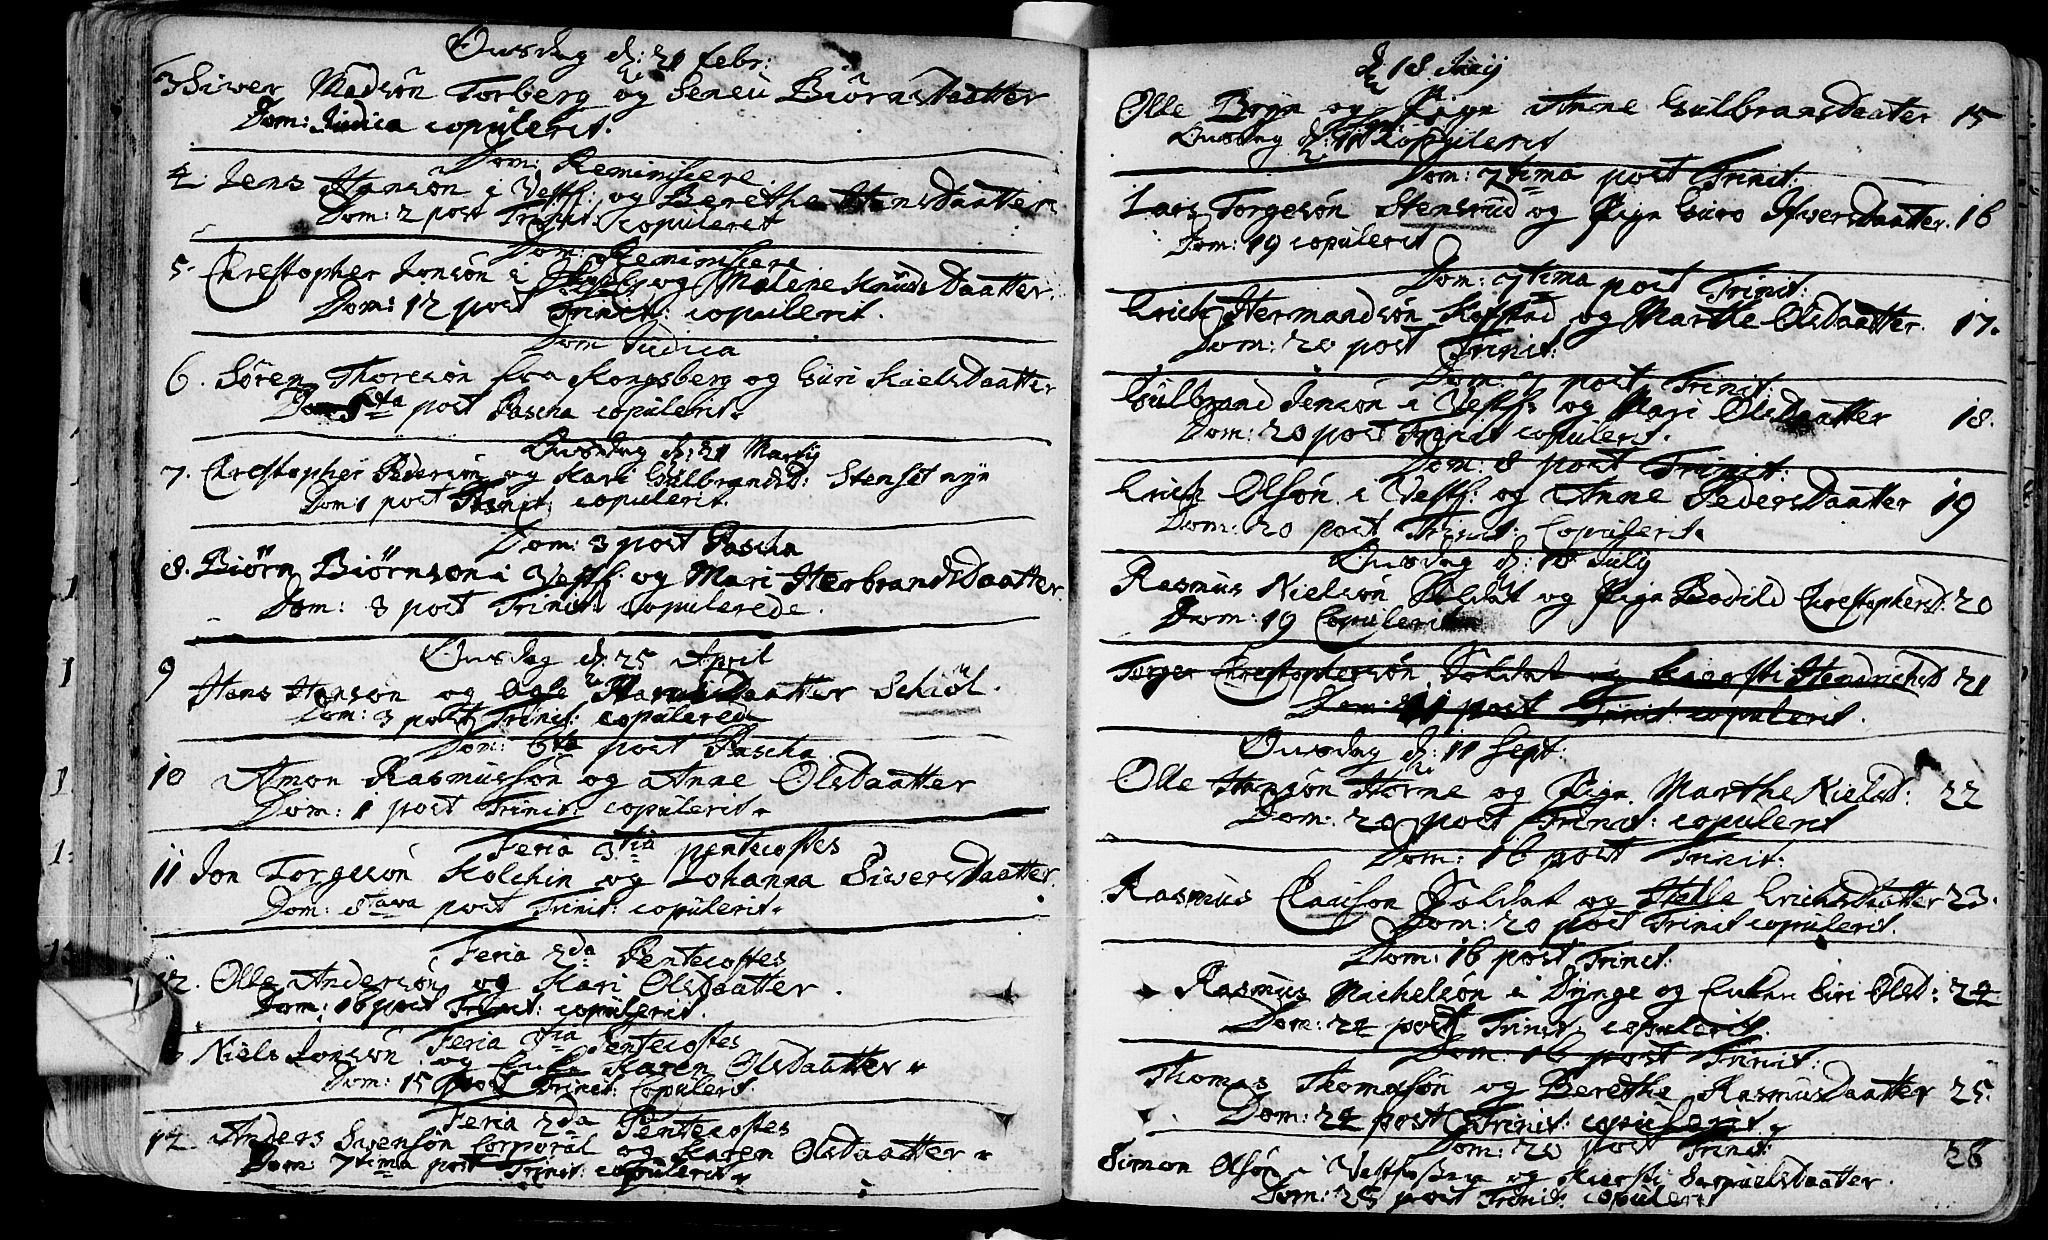 Onsdag d: 21 febr:
3 Siver Madsön Torberg og Seneu Biörnsdaatter
Dom: Judica copulerit.
Dom: Reminiscere
4. Jens Hansön i Vestf: og Berethe Hansdaatter
Dom: 2 post Trinit: copulerit
Dom: Reminiscere
5. Chrestopher Jonsön i og Malene Knudsdaatter.
Dom: 12 post Trinit: copulerit.
Dom Judica
6. Sören Thoresön fra Kongsberg og Guri Nielsdaatter
Dom post Pascha copulerit.
Onsdag d: 21 Martij
7. Chrestopher Pedersön og Kari Gulbrandsd: Stenset nyn
Dom 1 post Trinit: copulerit.
Dom: 3 post Pascha
8. Biörn Biörnsön i Vestf. og Mari Herbrandsdaatter.
Dom: 3 post Trinit: copulerede.
Onsdag d. 25 April
9 Hans Hansön og Aase daatter Schiöl.
Dom: 3 post Trinit: copulerede
Dom: 6ta post Pascha
10 Amon Rasmussön og Anne Olsdaatter
Dom: 1 post Trinit: copulerit.
Feria 3tia pentecostes
11 Jon Torgesön Kolchin og Johanna Siversdaatter.
Dom: 8tava post Trinit: copulerit.
Feria 2da Pentecostes
12. Olle Andersön og Kari Olsdaatter.
Dom: 16 post Trinit: copulerit.
Feria 3tia Pentecostes
Niels Jonsön og Enke Karen Olsdaatter
Dom: 15 post Trinit: Copulerit
Feria 2da Pentecostes
12 Anders Svensön Corporal og Karen Olsdaatter
Dom: 7tima post Trinit: copulerit
d 18 Junij
Olle Bryn og Pign Anne Gulbransdaatter 15
Onsdag d: 11 Copulerit
Dom: 7tima post Trinit:
Lars Torgesön Stensrud og Pign Guro Ifversdaatter. 16
Dom: 19 copulerit
Dom: 7tima post Trinit:
Erich Hermandsön Kopstad og Marthe Olsdaatter. 17.
Dom: 20 post Trinit:
Dom. 7 post Trinit:
Gulbrand Jensön i Vestf: og Mari Olsdaatter 18.
Dom: 20 post Trinit copulerit.
Dom: 8 post Trinit:
Erich Olsön i Vestf: og Anne Pedersdaatter 19
Dom: 20 post Trinit: Copulerit.
Onsdag d: 18 July
Rasmus Nielsön Soldat og Pign Bodild Chrestophersd: 20
Dom: 19 Copulerit
Torger Chrestophersön Soldat og Kiersti Hendrichsd 21
Dom: 21 post Trinit: copulerit.
Onsdag d: 11 Sept:
Olle Hansön Horne og Pign Marthe Nielsd: 22
Dom: 20 post Trinit: copulerit
Dom: 16 post Trinit:
Rasmus Clauson Soldat og Helle Erichsdaatter 23.
Dom: 20 post Trinit copulerit.
Dom: 16 post Trinit:
Rasmus Michelsön i Dynge og Enken Siri Olsd: 24
Dom: 24 post Trinit: copulerit.
Dom: 16 post Trinit:
Thomas Thomasön og Berethe Rasmusdaatter 25.
Dom: 24 post Trinit: copulerit
Dom: 20 post Trinit:
Simon Olsön i Vestfossen og Kiersti Samuelsdaatter. 26
Dom: 25 post Trinit: copulerit